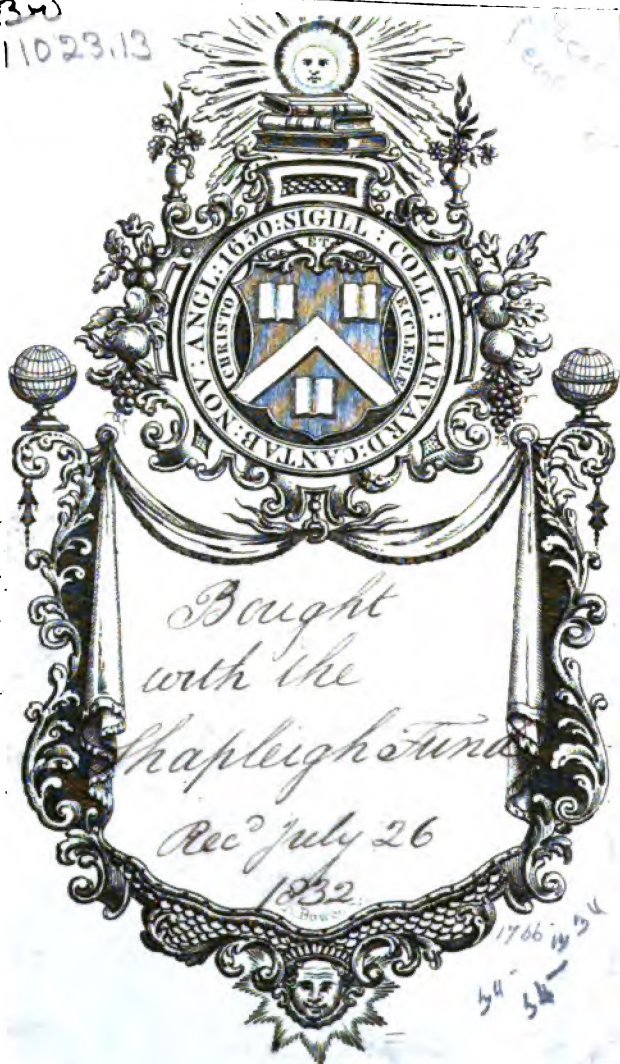 11023.13
SIGILL : COLL : HARVARD : CANTAB : NOV : ANGL : 1650 :
CHRISTO ET ECCLESIÆ
Bought
with the
Shapleigh Fund
Recᵈ July 26
1832
1766